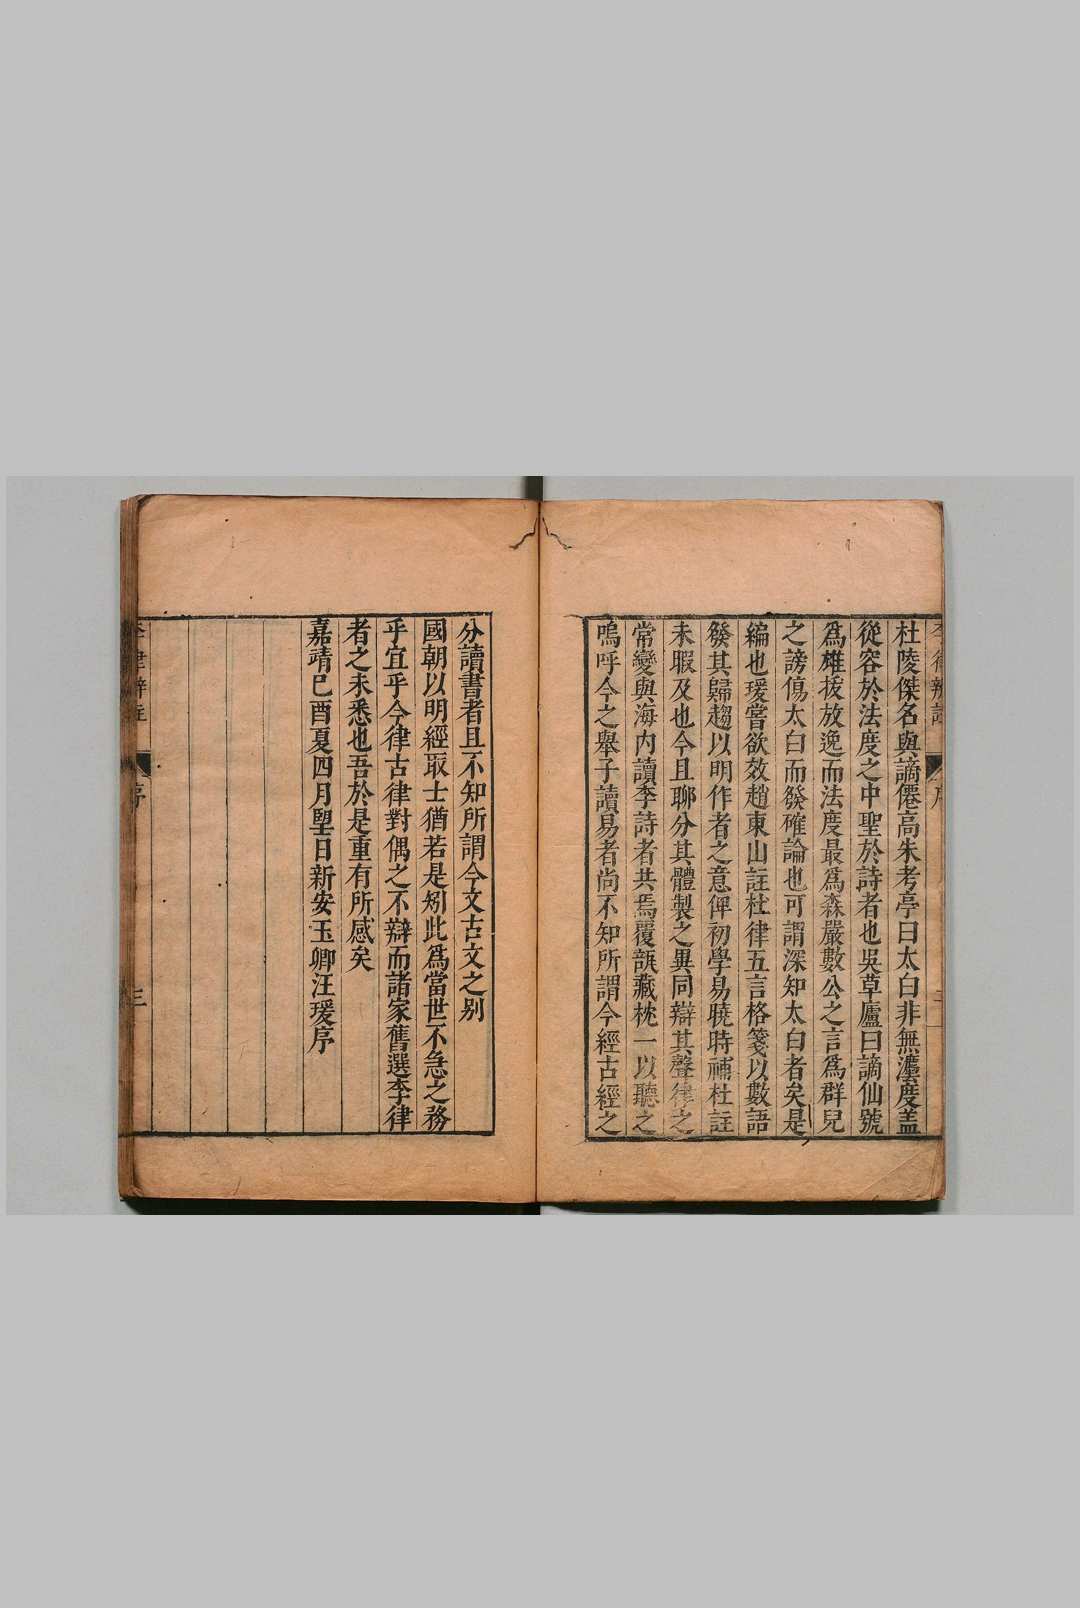 杜陵傑名與謫僊高朱考亭曰太白非無灋度盖
從容於法度之中聖於詩者也吳草廬曰謫仙號
爲雄拔放逸而法度最爲森嚴數公之言爲群兒
之謗傷太白而發確論也可謂深知太白者矣是
編也瑗嘗欲效趙東山註杜律五言格箋以數語
發其歸趨以明作者之意俾初學易曉時補杜註
未暇及也今且聊分其體製之異同辯其聲律之
常變與海内讀李詩者共焉覆瓿藏枕一以聽之
嗚呼今之舉子讀易者尚不知所謂今經古經之
序
分讀書者且不知所謂今文古文之别
國朝以明經取士猶若是矧此爲當世不急之務
乎宜乎今律古律對偶之不辯而諸家舊選李律
者之未悉也吾於是重有所感矣
嘉靖己酉夏四月朢日新安玉卿汪瑗序
李律辨註 序 三